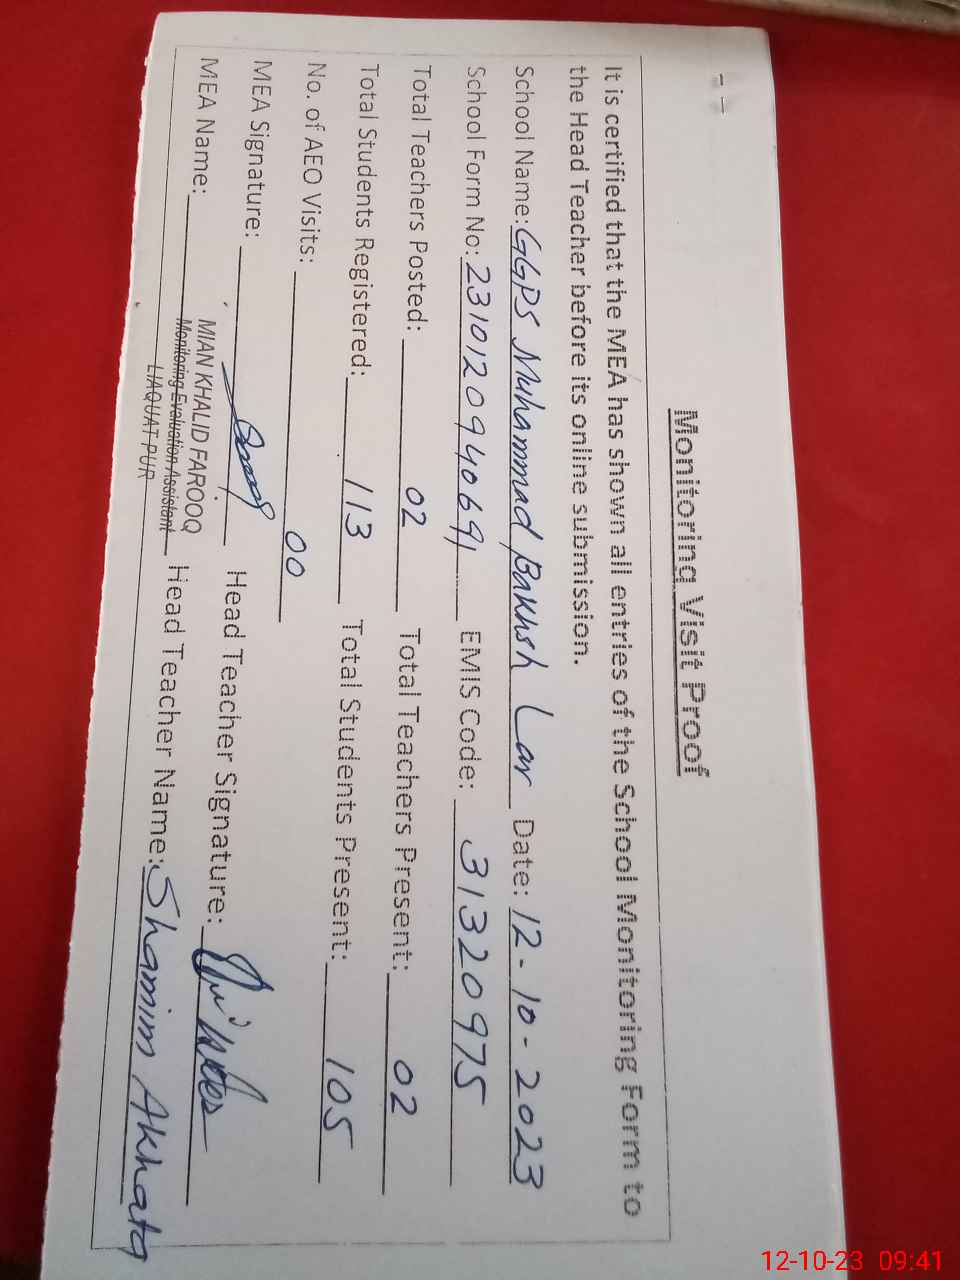 Monitoring Visit Proof
It is certified that the MEA has shown all entries of the School Monitoring Form to
the Head Teacher before its online submission.
School Name: GGPS Muhammad Bakhsh Lar Date: 12-10-2023
School Form No: 2310120940691 EMIS Code: 31320975
Total Teachers Posted: 02 Total Teachers Present: 02
Total Students Registered: 113 Total Students Present: 105
No. of AEO Visits: 00
MEA Signature: Head Teacher Signature:
MEA Name: MIAN KHALID FAROOQ Head Teacher Name: Shamim Akhatq
Monitoring Evaluation Assistant
LIAQUAT PUR
12-10-23 09:41